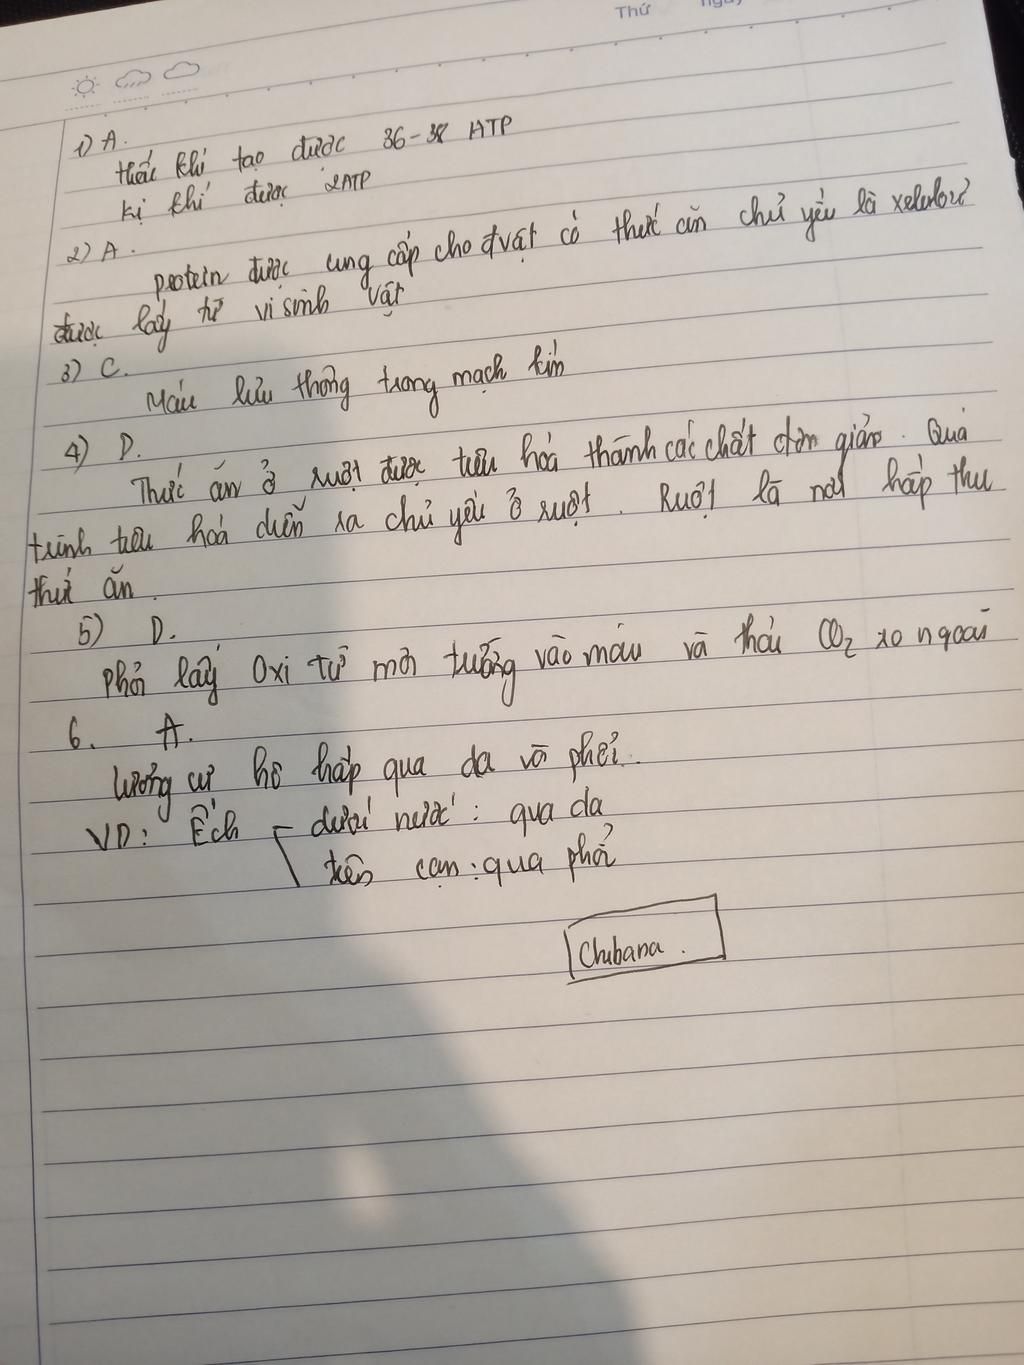 Thứ ngày
1) A.
Hiếu khí tạo được 36-38 ATP
Kị khí được 2ATP
2) A.
protein được cung cấp cho đvật có thức ăn chủ yếu là xelulozơ
được lấy từ vi sinh vật
3) C.
Máu lưu thông trong mạch kín
4) D.
Thức ăn ở ruột được tiêu hoá thành các chất đơn giản. Quá
trình tiêu hoá diễn ra chủ yếu ở ruột. Ruột là nơi hấp thu
thức ăn.
5) D.
Phổi lấy Oxi từ môi trường vào máu và thải CO2 ra ngoài
6. A.
Lưỡng cư hô hấp qua da và phổi.
VD: Ếch dưới nước: qua da
trên cạn: qua phổi
Chubana.